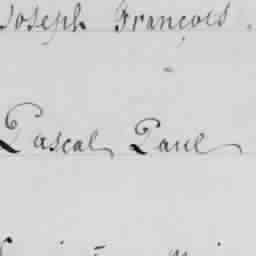 Joseph François.
Pascal Paul